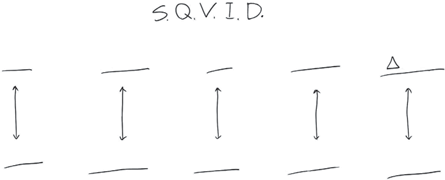 S.Q.V.I.D.
Δ